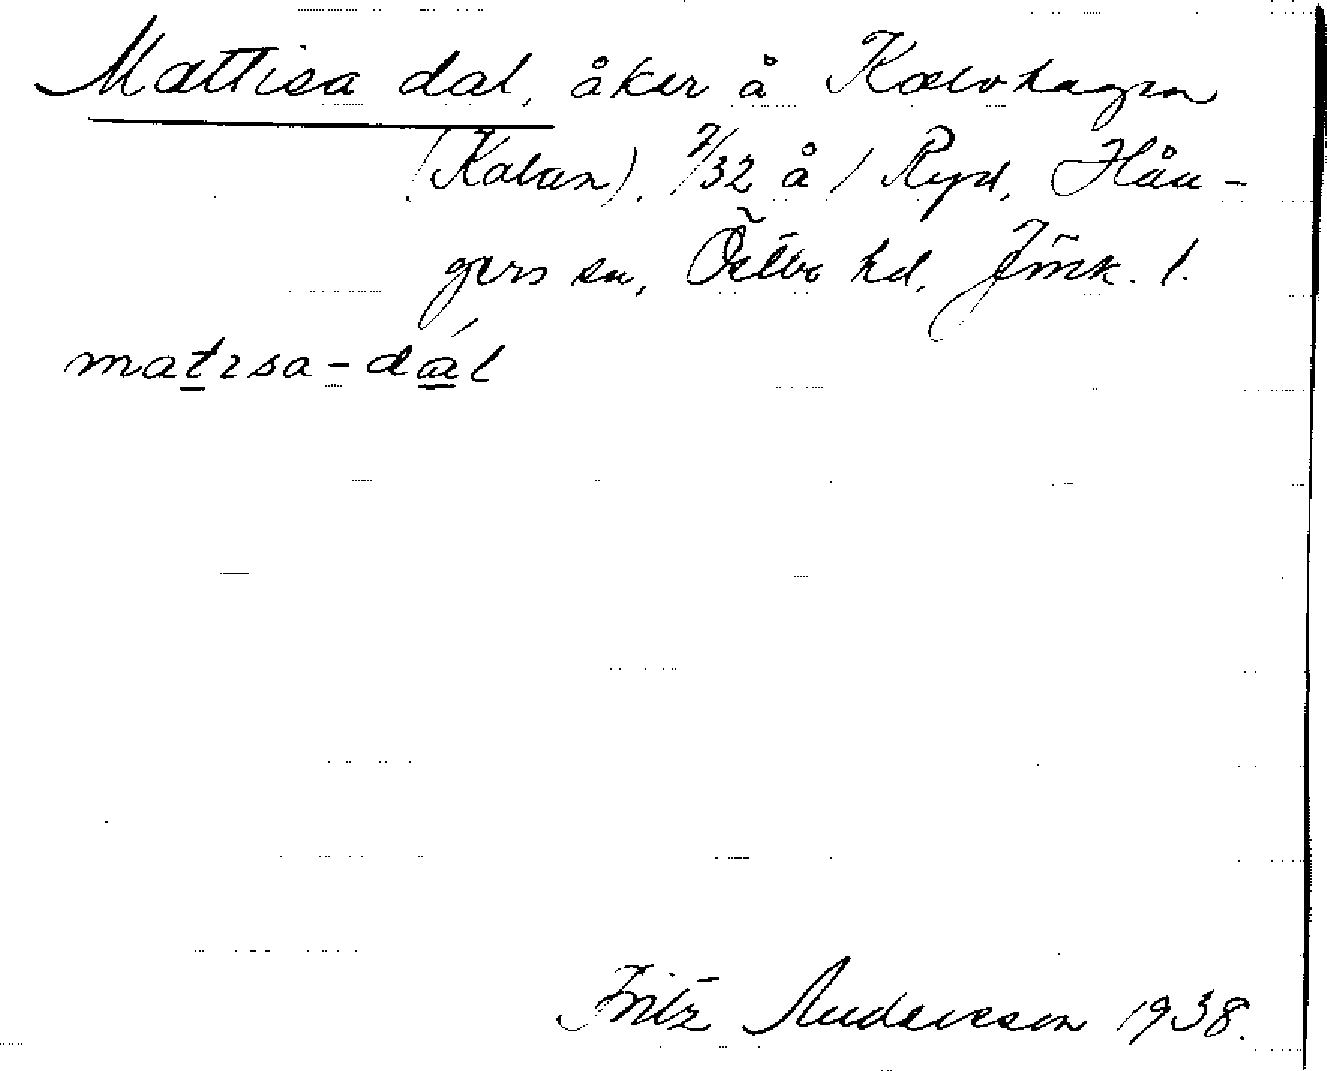 Mattisa dal, åker å Kalvhagen
(Kalven). 7/32 å / Ryd, Hån-
gers sn, Östbo hd, Jönk. l.
matısa-dál
Fritz Andersson 1938.